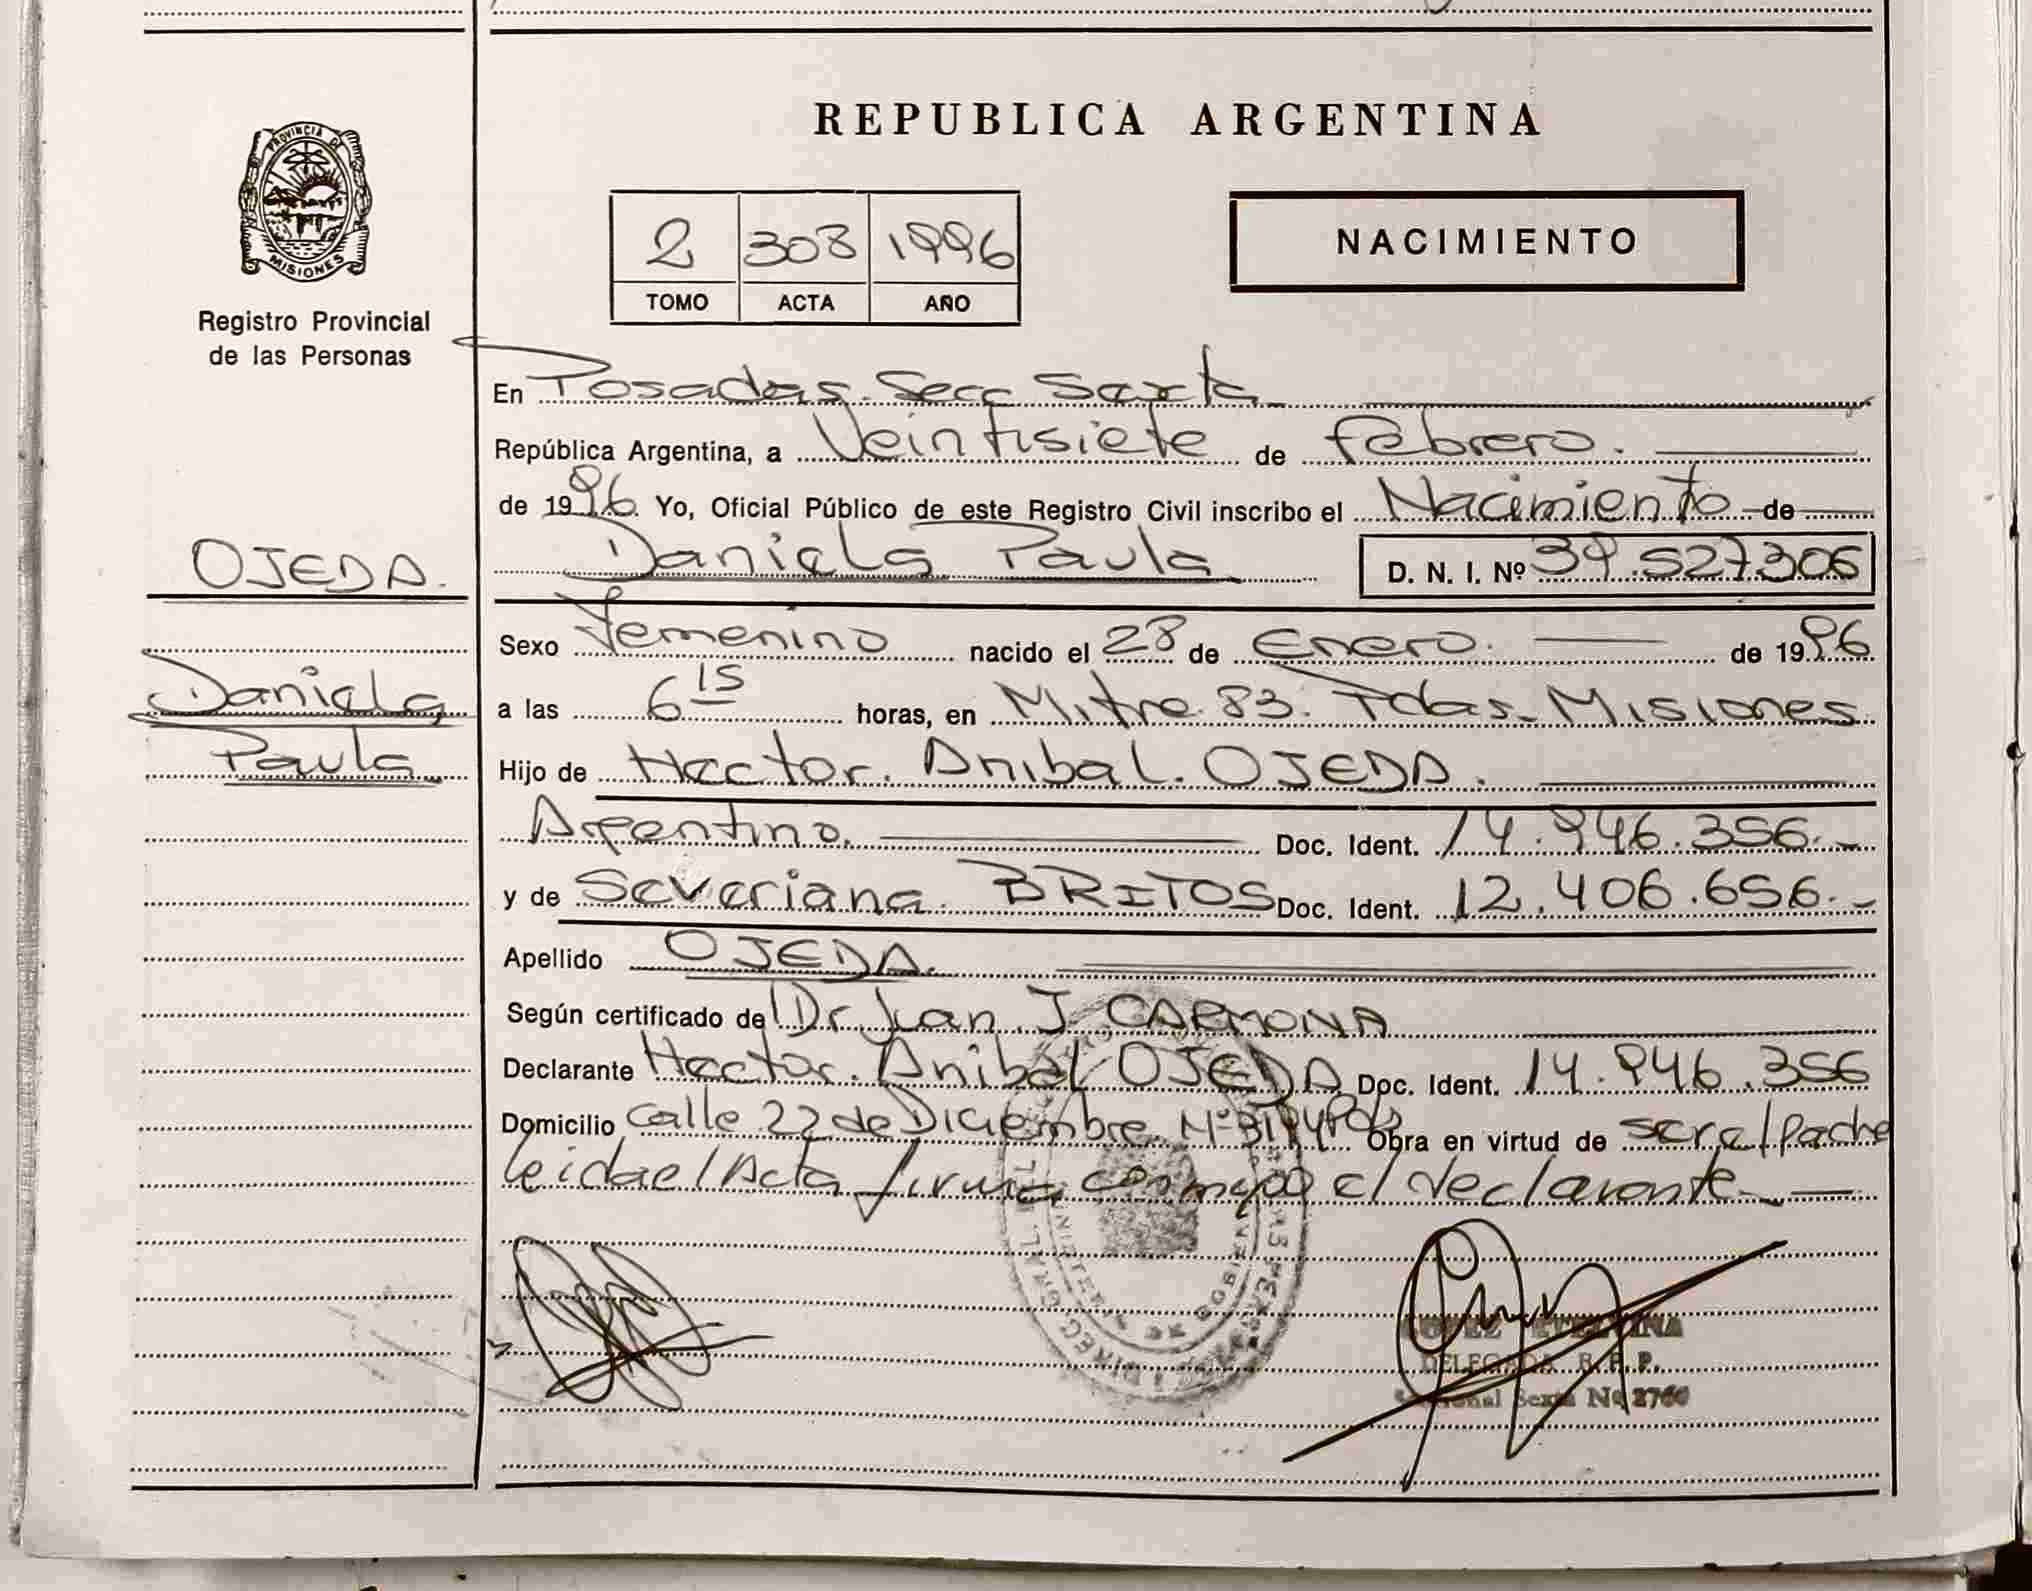 REPUBLICA ARGENTINA
PROVINCIA DE
MISIONES
Registro Provincial
de las Personas
2 308 1996
TOMO ACTA AÑO
NACIMIENTO
En Posadas. Secc Sexta
República Argentina, a Veintisiete de Febrero.
de 1996. Yo, Oficial Público de este Registro Civil inscribo el Nacimiento de
OJEDA.
Daniela Paula D. N. I. Nº 39.527.306
Sexo Femenino nacido el 28 de Enero. de 1996
Daniela
a las 6 15 horas, en Mitre 83. Pdas. Misiones
Paula.
Hijo de Hector. Anibal. OJEDA.
Argentino. Doc. Ident. 14.946.356.-
y de Severiana BRITOS Doc. Ident. 12.406.656.-
Apellido OJEDA.
Según certificado de Dr. Juan J CARMONA
Declarante Hector. Anibal OJEDA Doc. Ident. 14.946.356
Domicilio Calle 22 de Diciembre Nº Obra en virtud de
leida el Acta firma conmigo el declarante
DELEGADA R.P.P.
Sexta Nº 2760